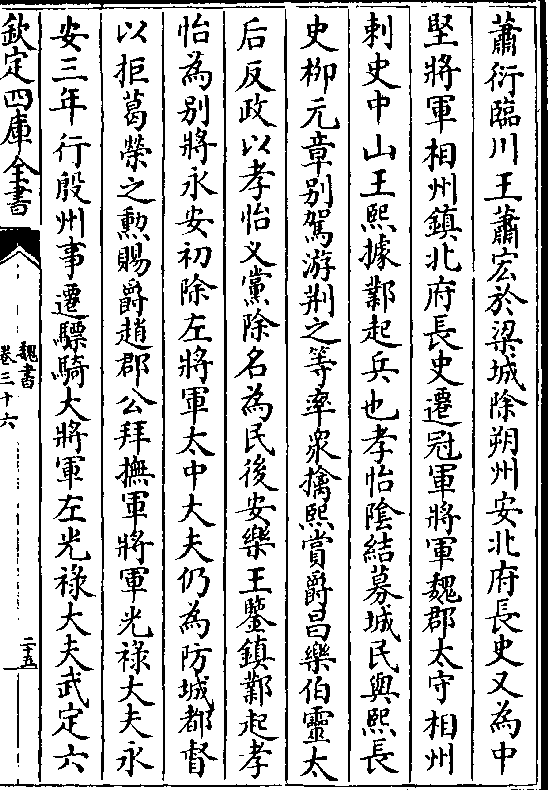 蕭衍臨川王蕭宏於梁城除朔州安北府長史又為中
堅將軍相州鎮北府長史遷冠軍將軍魏郡太守相州
刺史中山王熙據鄴起兵也孝怡陰結募城民與熙長
史柳元章别駕游荆之等率衆擒熙賞爵昌樂伯靈太
后反政以孝怡义黨除名為民後安樂王鑒鎮鄴起孝
怡為别將永安初除左將軍太中大夫仍為防城都督
以拒葛榮之勲賜爵趙郡公拜撫軍將軍光禄大夫永
安三年行殷州事遷驃騎大將軍左光禄大夫武定六
欽定四庫全書
魏書
卷三十六
二十五